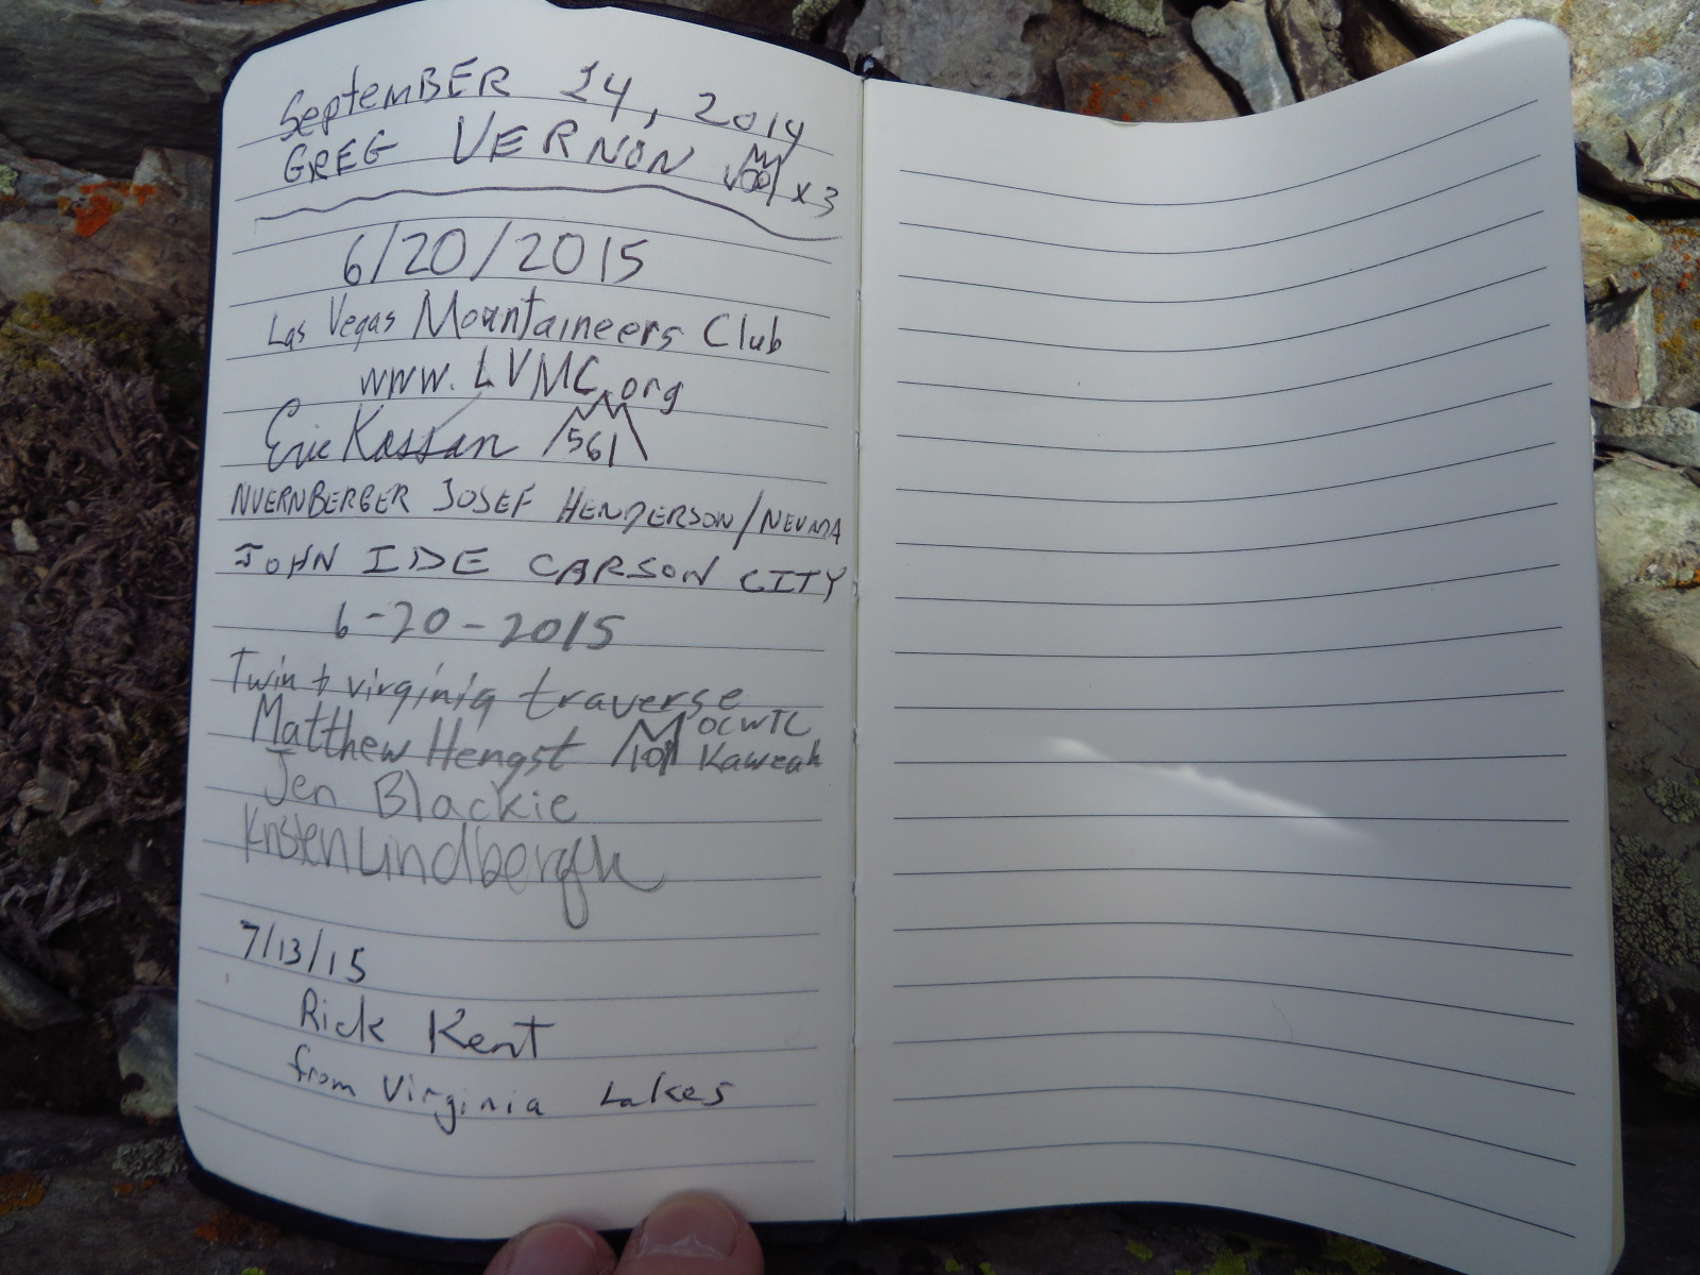 September 24, 2014
GREG VERNON 100 x3
6/20/2015
Las Vegas Mountaineers Club
www.LVMC.org
Eric Kassan 561
NUERNBERGER JOSEF HENDERSON/NEVADA
JOHN IDE CARSON CITY
6-20-2015
Twin + virginia traverse
Matthew Hengst 101 OCWTC Kaweah
Jen Blackie
Kristen Lindbergh
7/13/15
Rick Kent
from Virginia Lakes